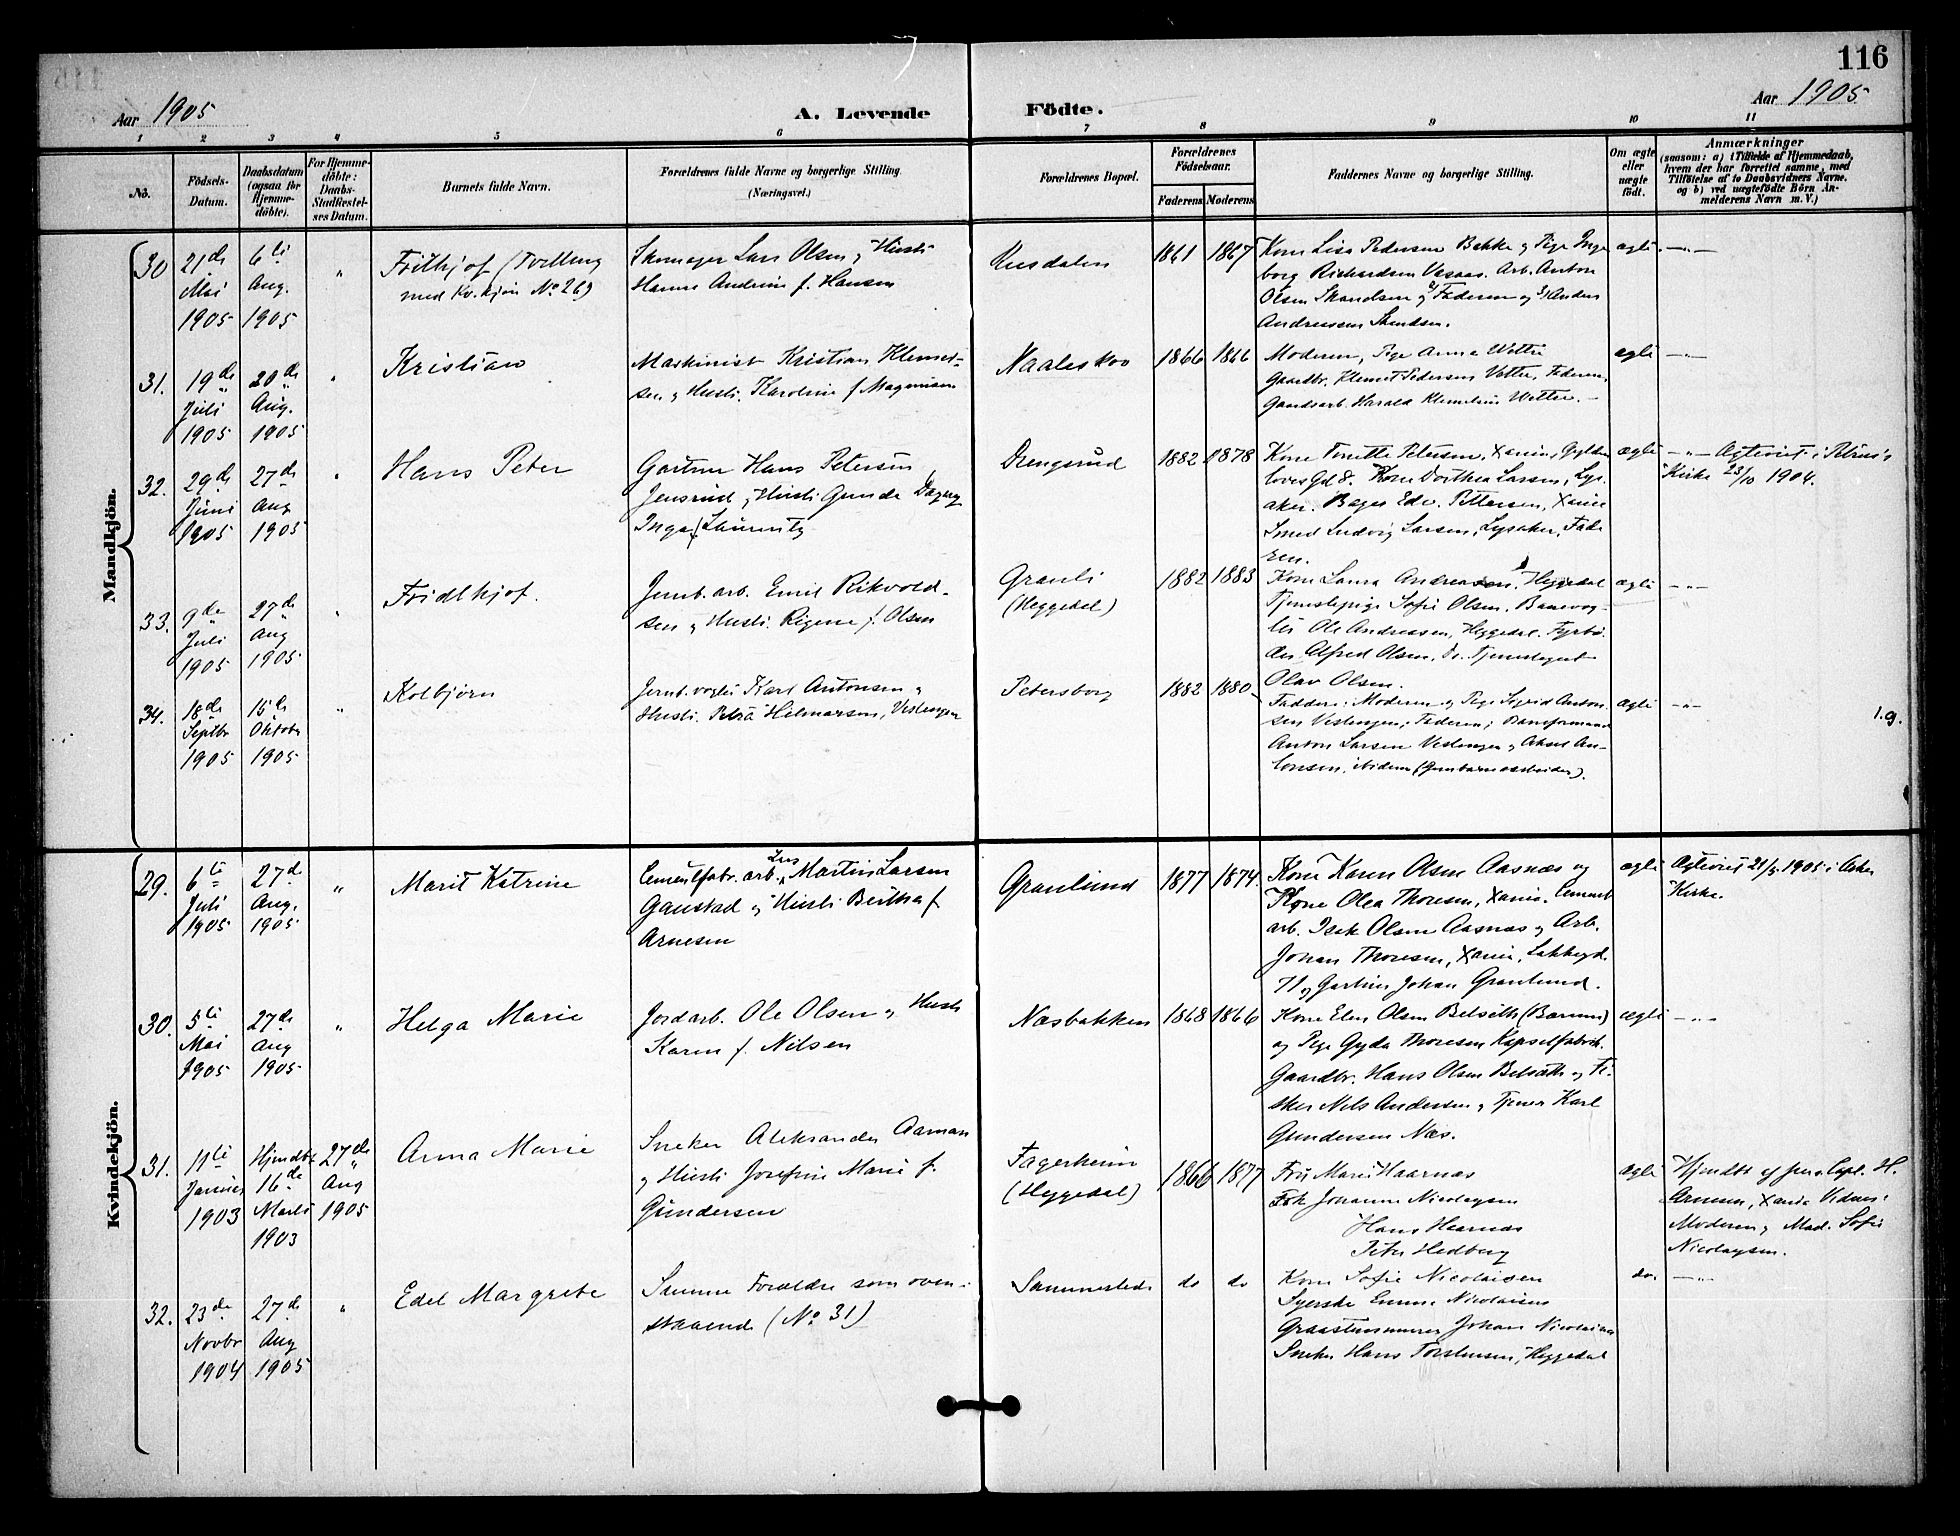 116
Aar 1905
A. Levende Födte.
Aar 1905
1 2 3 4 5 6 7 8 9 10 11
No.
Födsels-
Datum.
Daabsdatum
(ogsaa for
Hjemme-
döbte).
For Hjemme-
döbte:
Daabs-
Stadfæstel-
ses Datum.
Barnets fulde Navn.
Forældrenes fulde Navne og borgerlige Stilling.
(Næringsvei.)
Forældrenes Bopæl.
Forældrenes
Födselsaar.
Faderens Moderens
Faddernes Navne og borgerlige Stilling.
Om ægte
eller
uægte
født.
Anmærkninger
(saasom: a) i Tilfælde af Hjemmedaab,
hvem der har forrettet samme, med
Tilføielse af to Daabsvidners Navne,
og b) ved uægtefödte Börn An-
melderens Navn m. V.)
Mandkjön.
30
21de
Mai
1905
6te
Aug.
1905
"
Frithjof (Tvilling
med Kv.kjøn No 26)
Skomager Lars Olsen og Hustr.
Hanne Andrine f. Hansen
1861
1867
Kone Lisa Pedersen Bakke og Pige Inge
borg Richardsen Arb. Anton
Olsen og Faderen og Anders
Andreassen
ægte
—"—
31.
19de
Juli
1905
20de
Aug.
1905
"
Kristian
Maskinist Kristian Klemet-
sen og Hustr. Karoline f. Magnusen
Naaleskov
1866
1866
Moderen, Pige Anna Vettre
Gaardbr. Klemet Pedersen Vettre, Faderen,
Gaardsarb. Harald Klemetsen Vettre.
ægte
—"—
32.
29de
Juni
1905
27de
Aug
1905
"
Hans Peter
Gartner Hans Petersen
Jensrud og Hustr. Gunda Dagny
Inga f. Laurentz
Drengsrud
1882
1878
Kone Petersen, Xania, Gylden
løvesgd 8. Kone Dorthea Larsen, Lys-
aker. Bager Edv. Pettersen, Xania
Smed Ludvig Larsen, Lysaker, Fade
ren.
ægte
—"— Ægteviet i Petrus's
Kirke 23/10 1904.
33.
9de
Juli
1905
27de
Aug
1905
"
Fridthjof.
Jernb. arb. Emil Rikvold-
sen og Hustr. f. Olsen
Granli
(Heggedal)
1882
1883
Kone Laura Andreassen, Heggedal
Tjenestepige Sofie Olsen. Banevog-
ter Ole Andreassen, Heggedal. Fyrbø-
der Alfred Olsen, do. Tjenestegut
Olav Olsen.
ægte
—"—
34.
18de
Septbr
1905
15de
Oktobr
1905
"
Kolbjørn
Jernb.vogter Karl Antonsen og
Hustr. Petra Hilmarsen, Vestengen
Petersborg
1882
1880
Faddere: Moderen og Pige Sigrid Anton-
sen Vestengen; Faderen; Baneformand
Anton Larsen Vestengen og Aksel An-
tonsen, ibidem (Jernbanearbeider).
ægte
—"—
1.9.
Kvindekjön.
29.
6te
Juli
1905
27de
Aug.
1905
"
Marit Katrine
Cementfabr. arb. Martin Larsen
Gaustad og Hustr. Bertha f.
Arnesen
Granlund
1877
1874.
Kone Karen Olsen Aasnæs og
Kone Olea Thoresen, Xania. Cement
arb. Isak Olsen Aasnæs og Arb.
Johan Thoresen, Xania,
71 og Gartner Johan Granlund.
ægte
Ægteviet 21/5 1905 i Asker
Kirke.
30.
5te
Mai
1905
27de
Aug
1905
"
Helga Marie
Jordarb. Ole Olsen og Hustr.
Karen f. Nilsen
Næsbakken
1868
1866
Kone Elen Olsen Belsæth (Bærum)
og Pige Gyda Thoresen Kapselfabrik.
Gaardbr. Hans Olsen Belsæth og Fi-
sker Nels Andersen og Tjener Karl
Gundersen Næs.
ægte
—"—
31.
11te
Januar
1903
Hjemdbt.
16de
Marts
1903
27de
Aug
1905
Anna Marie
Sneker Aleksander Aaman
og Hustr. Josefine Marie f.
Gundersen
Fagerheim
(Heggedal)
1866
1877
Fru Marie Haarnæs
Frk Johanne Nicolaysen
Hans Haarnæs
Peter Hedberg
ægte
Hjemdbt af Capt. H.
Arnesen, Xania Vidner:
Moderen og Mad. Sofie
Nicolaysen.
32.
23de
Novbr
1904
27de
Aug
1905
"
Edel Margrete
Samme Forældre som oven-
staaende (No 31)
Sammesteds
do
do
Kone Sofie Nicolaisen
Syerske Emma Nicolaisen
Johan Nicolaisen
Sneker Hans Torstensen, Heggedal
do.
—"—